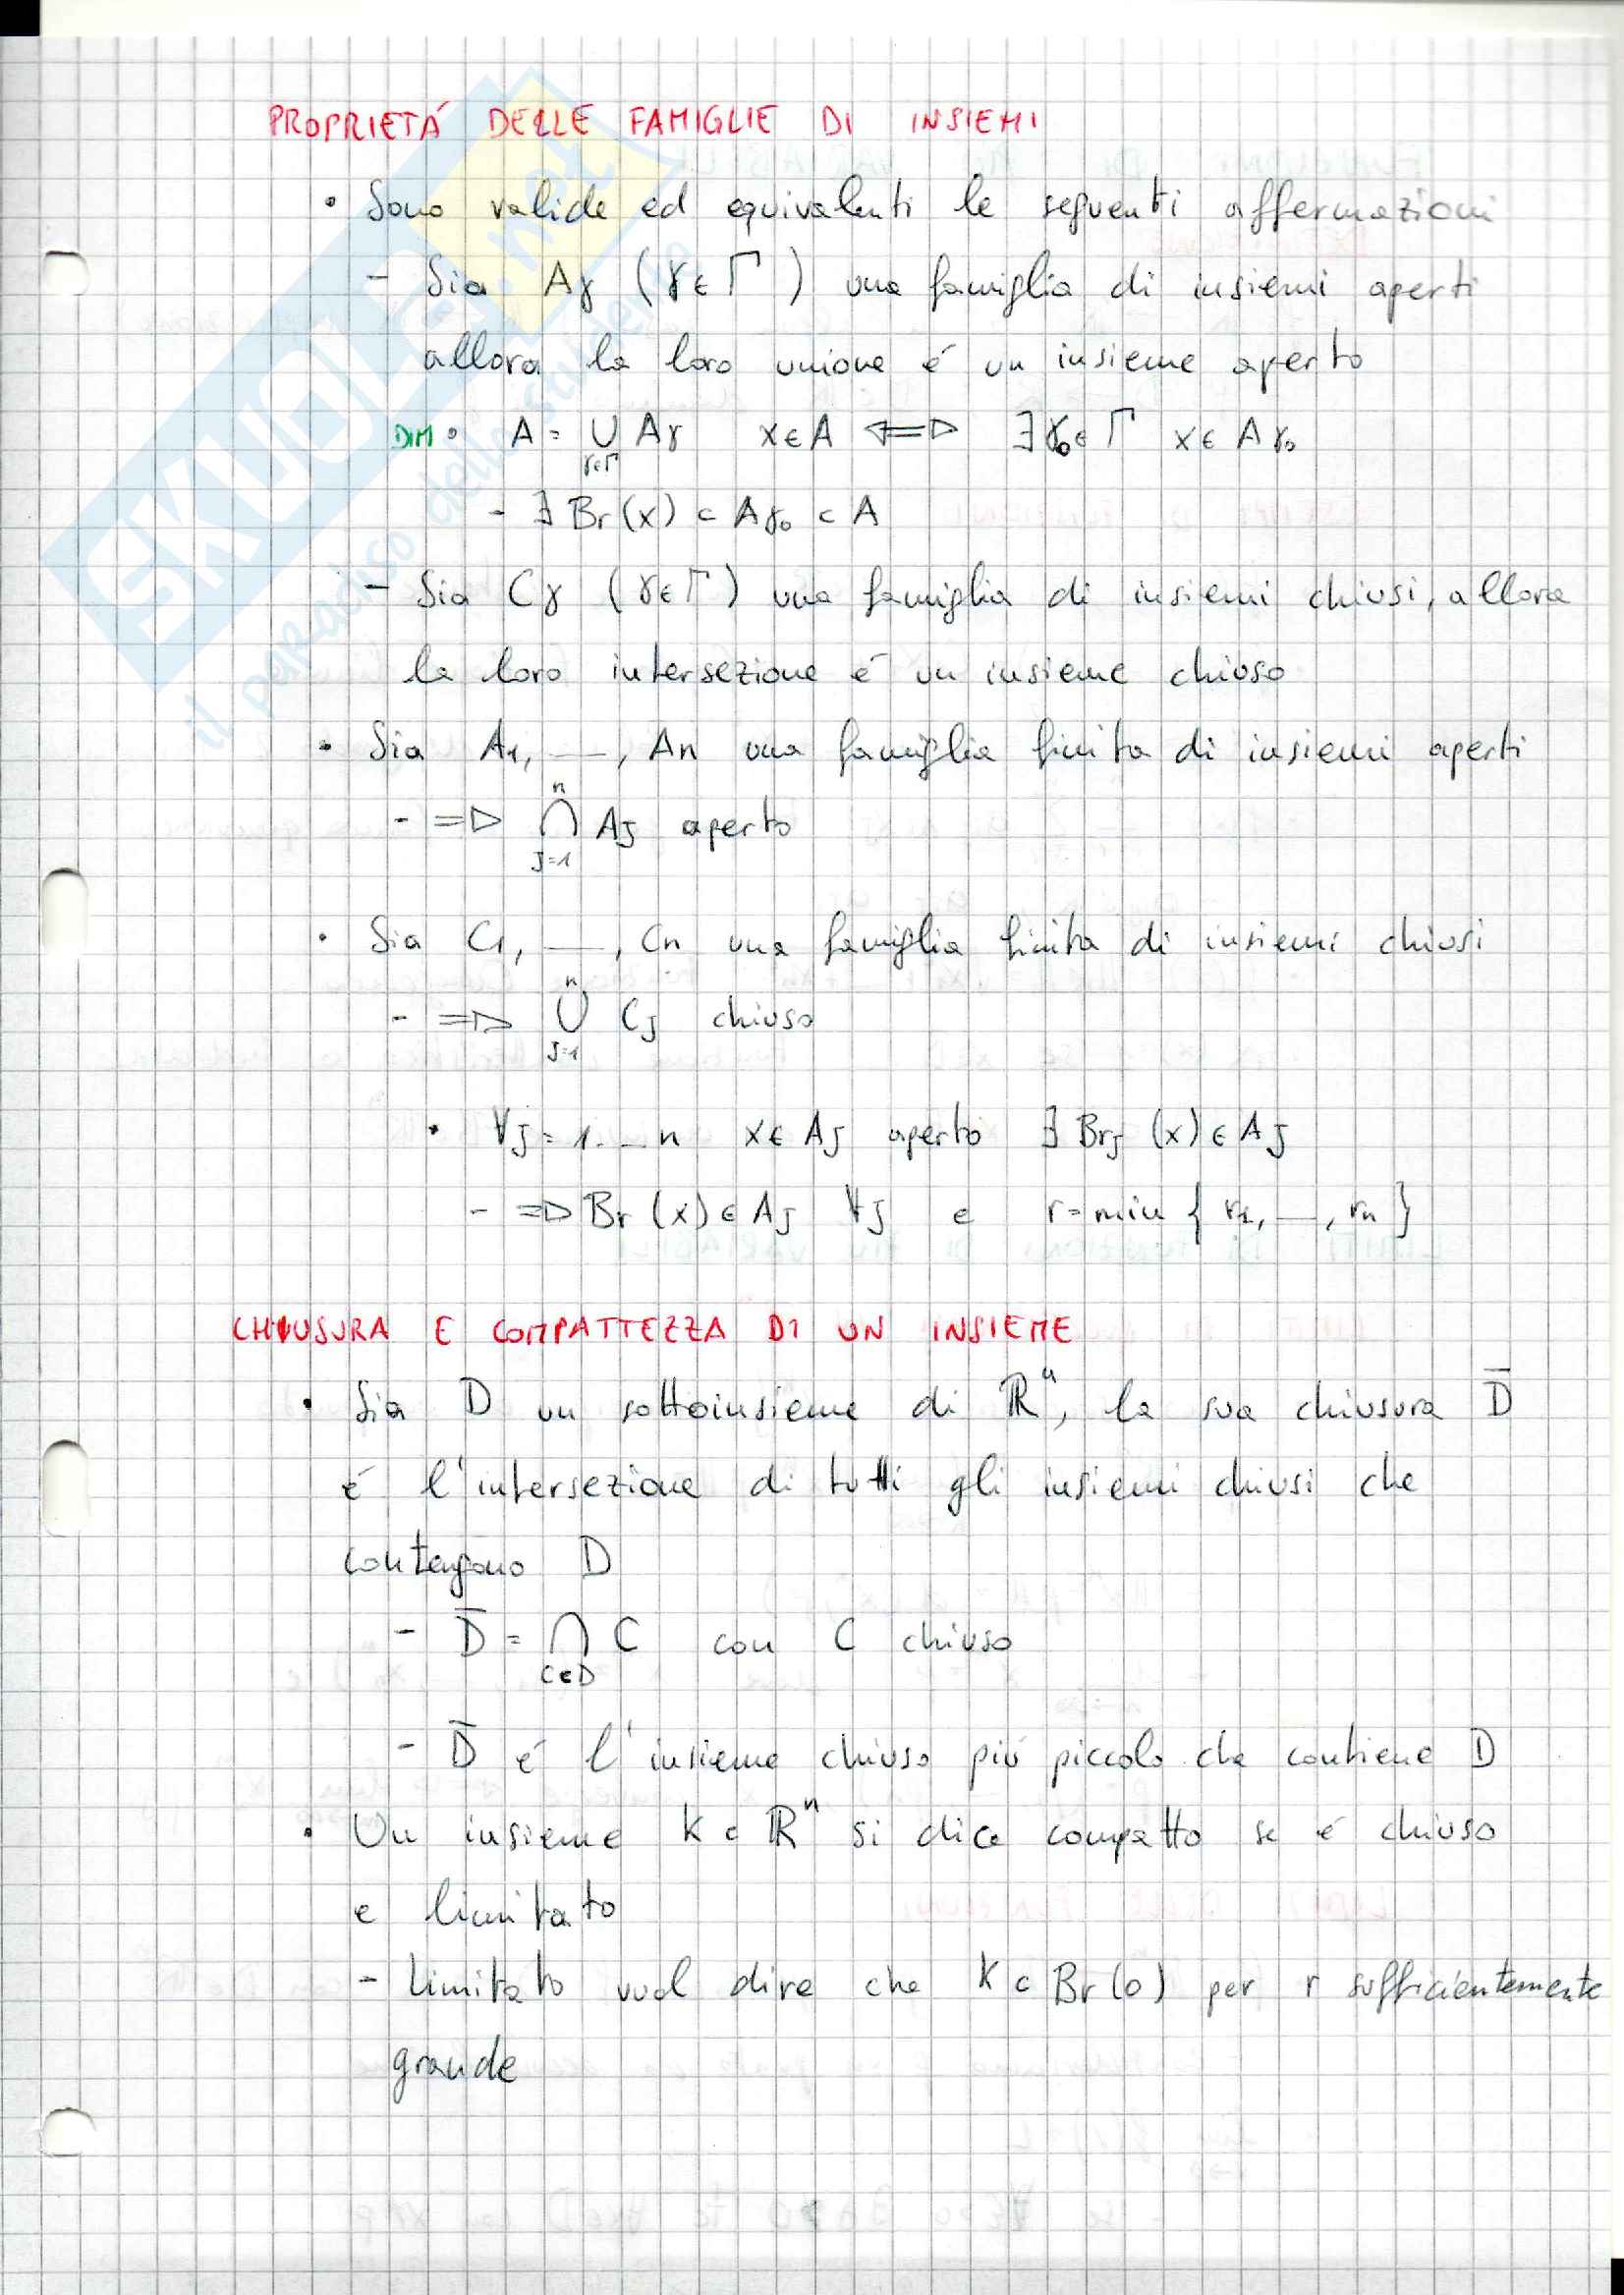 PROPRIETÁ DELLE FAMIGLIE DI INSIEMI
• Sono valide ed equivalenti le seguenti affermazioni
- Sia Aγ (γ∈Γ) una famiglia di insiemi aperti
allora la loro unione é un insieme aperto
DIM • A = ∪ Aγ x∈A ⟺ ∃γ₀∈Γ x∈Aγ₀
γ∈Γ
- ∃ Br(x) ⊂ Aγ₀ ⊂ A
- Sia Cγ (γ∈Γ) una famiglia di insiemi chiusi, allora
la loro intersezione é un insieme chiuso
• Sia A1, —, An una famiglia finita di insiemi aperti
n
- ⟹ ∩ AJ aperto
J=1
• Sia C1, —, Cn una famiglia finita di insiemi chiusi
n
- ⟹ ∪ CJ chiuso
J=1
• ∀J = 1...n x∈AJ aperto ∃ BrJ (x) ∈ AJ
- ⟹ Br (x) ∈ AJ ∀J e r = min { r1, —, rn }
CHIUSURA E COMPATTEZZA DI UN INSIEME
• Sia D un sottoinsieme di ℝⁿ, la sua chiusura D̅
é l'intersezione di tutti gli insiemi chiusi che
contengono D
- D̅ = ∩ C con C chiuso
C∈D
- D̅ é l'insieme chiuso piú piccolo che contiene D
• Un insieme K ⊂ ℝⁿ si dice compatto se é chiuso
e limitato
- Limitato vuol dire che K ⊂ Br(0) per r sufficientemente
grande
SKUOLA.net
il paradiso dello studente